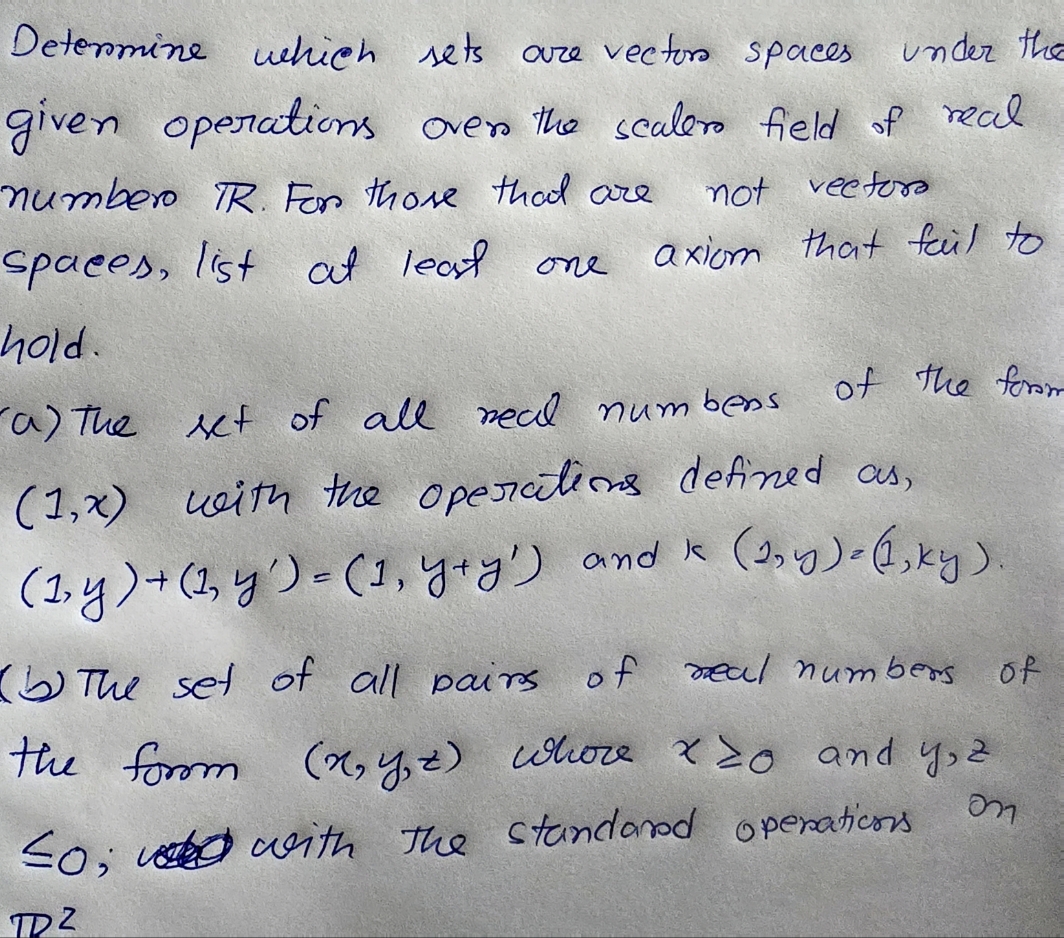 Determine which sets are vector spaces under the
given operations over the scaler field of real
number ℝ. For those that are not vector
spaces, list at least one axiom that fail to
hold.
(a) The set of all real numbers of the form
(1,x) with the operations defined as,
(1,y)+(1,y')=(1,y+y') and k(1,y)=(1,ky).
(b) The set of all pairs of real numbers of
the form (x,y,z) where x≥0 and y,z
≤0; with the standard operations on
ℝ²